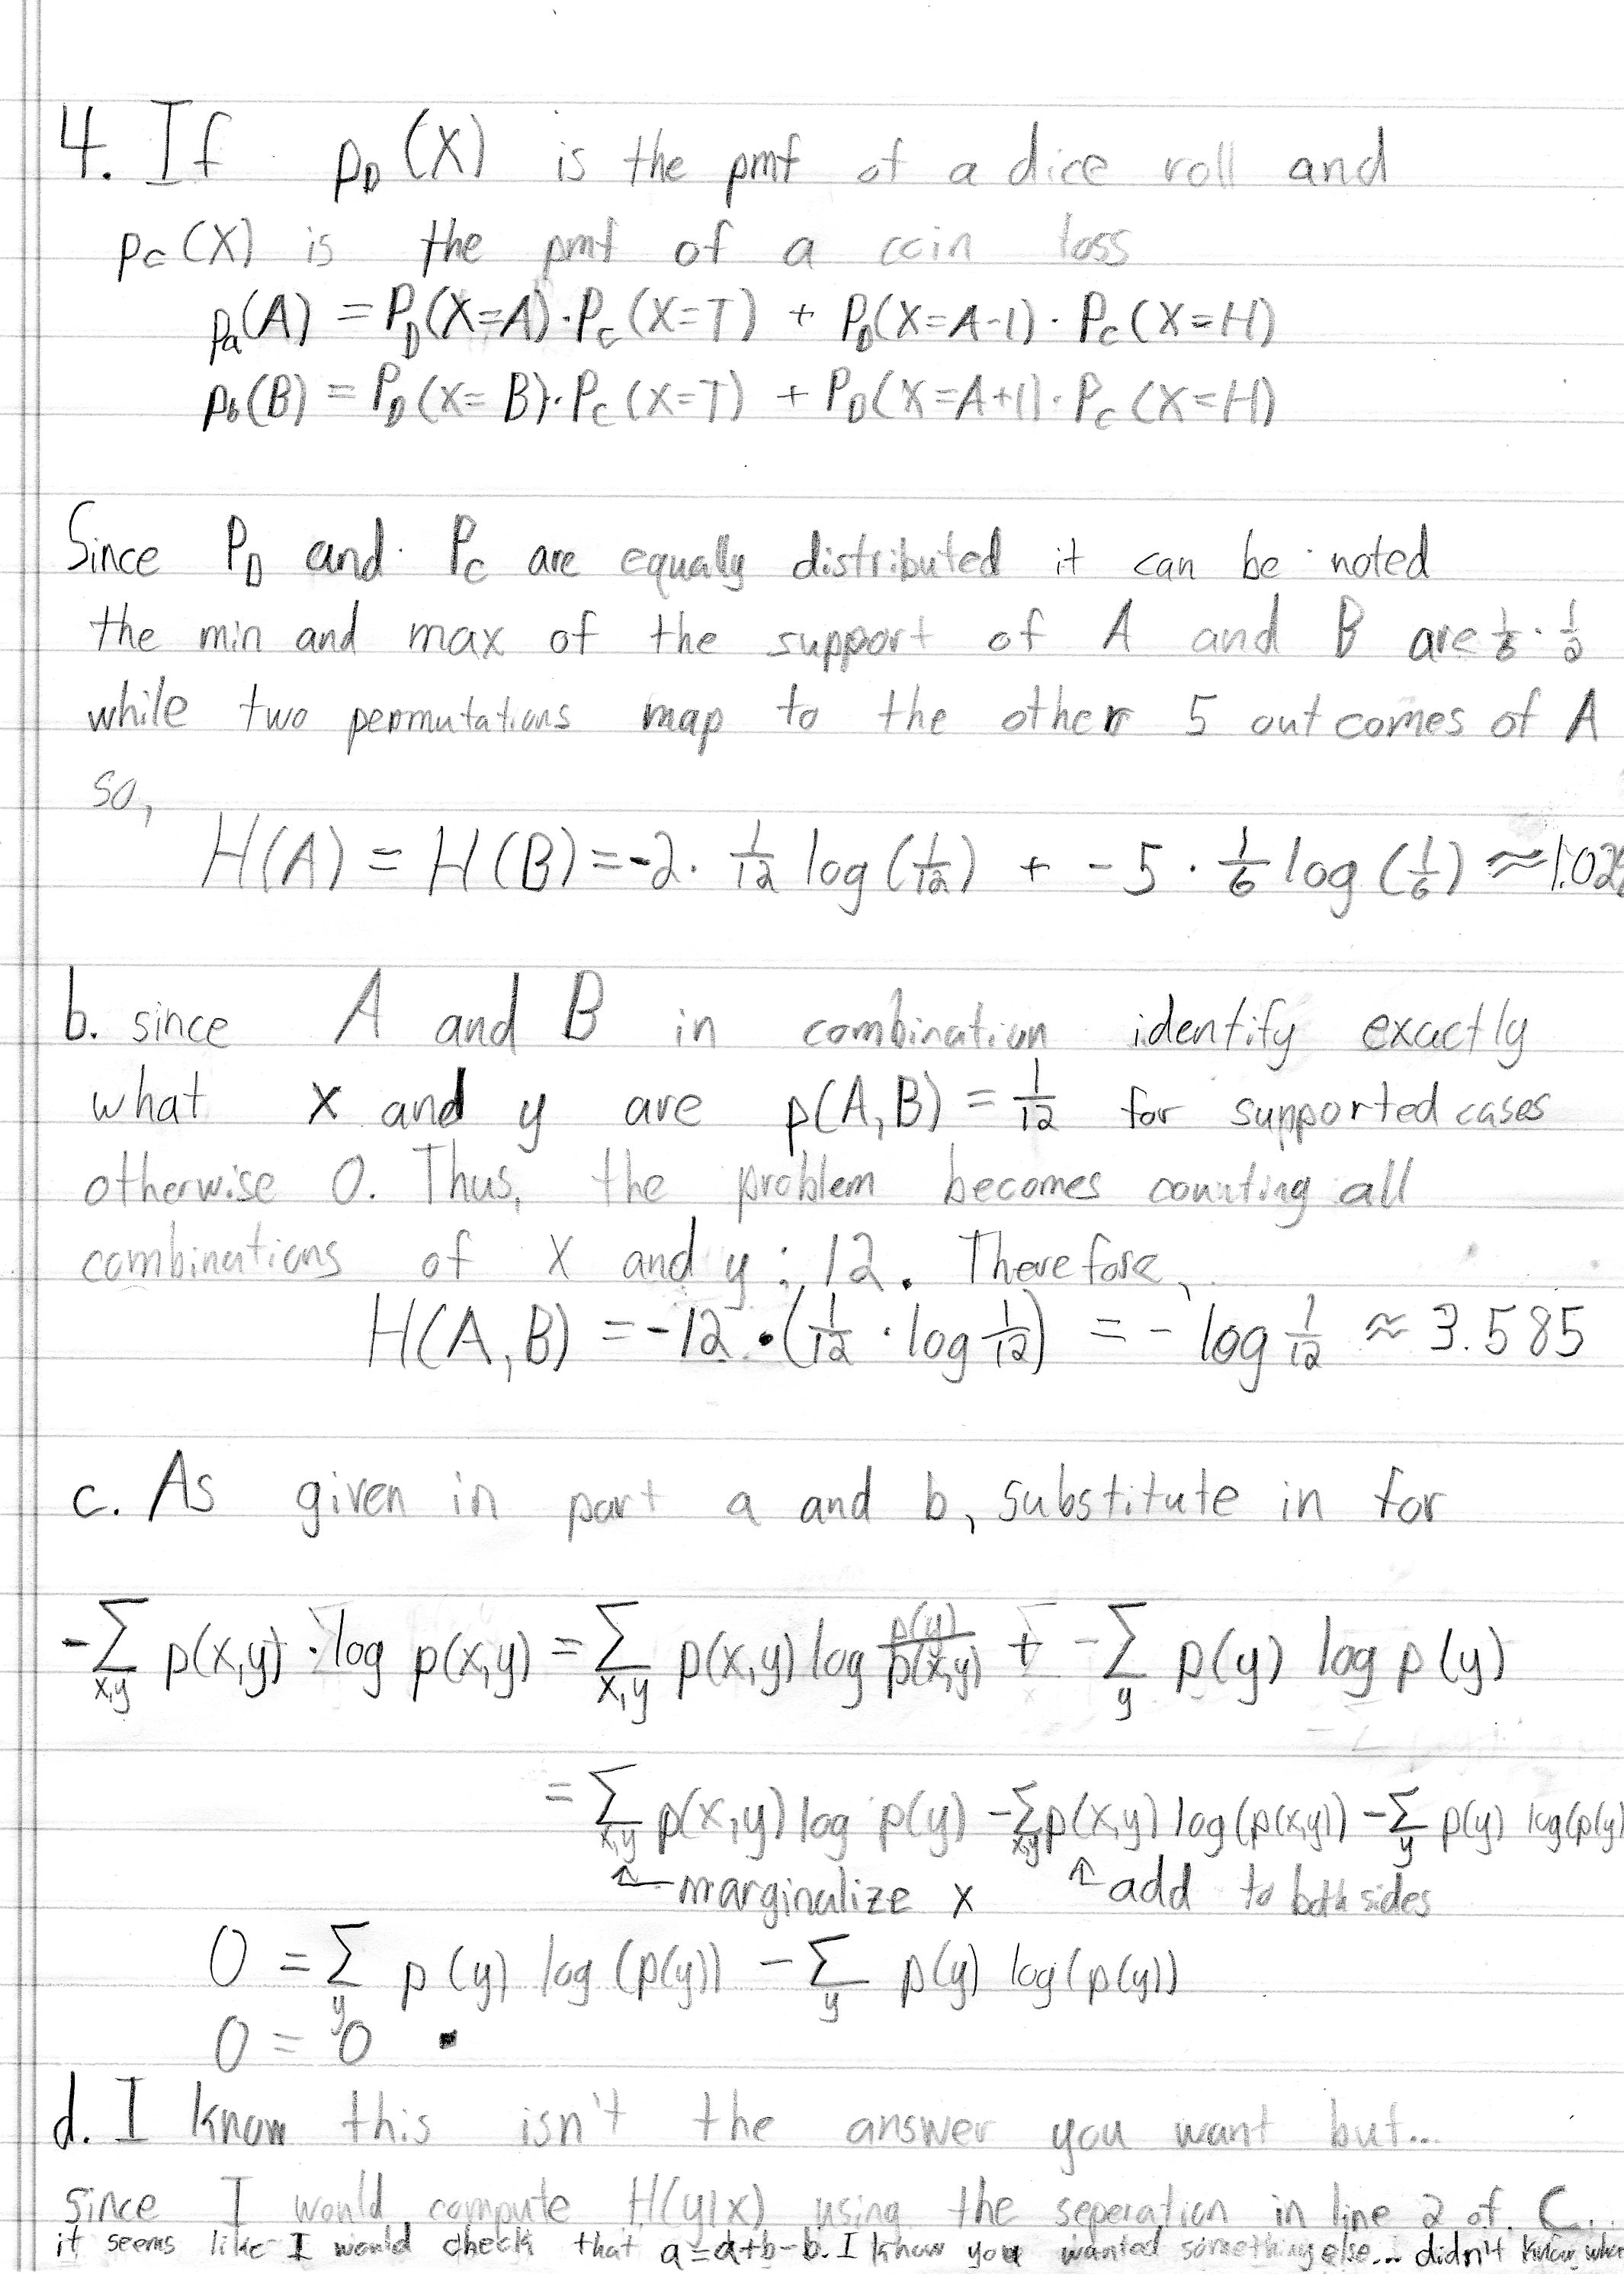 4. If p_D(X) is the pmf of a dice roll and
p_C(X) is the pmf of a coin toss
p_a(A) = P_D(X=A)·P_C(X=T) + P_D(X=A-1)·P_C(X=H)
p_b(B) = P_D(X=B)·P_C(X=T) + P_D(X=A+1)·P_C(X=H)
Since P_D and P_C are equally distributed it can be noted
the min and max of the support of A and B are 1/6 · 1/2
while two permutations map to the other 5 outcomes of A
so,
H(A) = H(B) = -2 · 1/12 log(1/12) + -5 · 1/6 log(1/6) ≈ 1.02
b. since A and B in combination identify exactly
what x and y are p(A,B) = 1/12 for supported cases
otherwise 0. Thus, the problem becomes counting all
combinations of X and y: 12. Therefore,
H(A,B) = -12 · (1/12 · log 1/12) = - log 1/12 ≈ 3.585
c. As given in part a and b, substitute in for
-∑_{x,y} p(x,y) · log p(x,y) = ∑_{x,y} p(x,y) log p(y)/p(x,y) + -∑_y p(y) log p(y)
= ∑_{x,y} p(x,y) log p(y) - ∑_{x,y} p(x,y) log(p(x,y)) - ∑_y p(y) log(p(y)
↑ marginalize x ↑ add to both sides
0 = ∑_y p(y) log(p(y)) - ∑_y p(y) log(p(y))
0 = 0 ▪
d. I know this isn't the answer you want but...
Since I would compute H(y|x) using the seperation in line 2 of C...
it seems like I would check that a=a+b-b. I know you wanted something else... didn't know